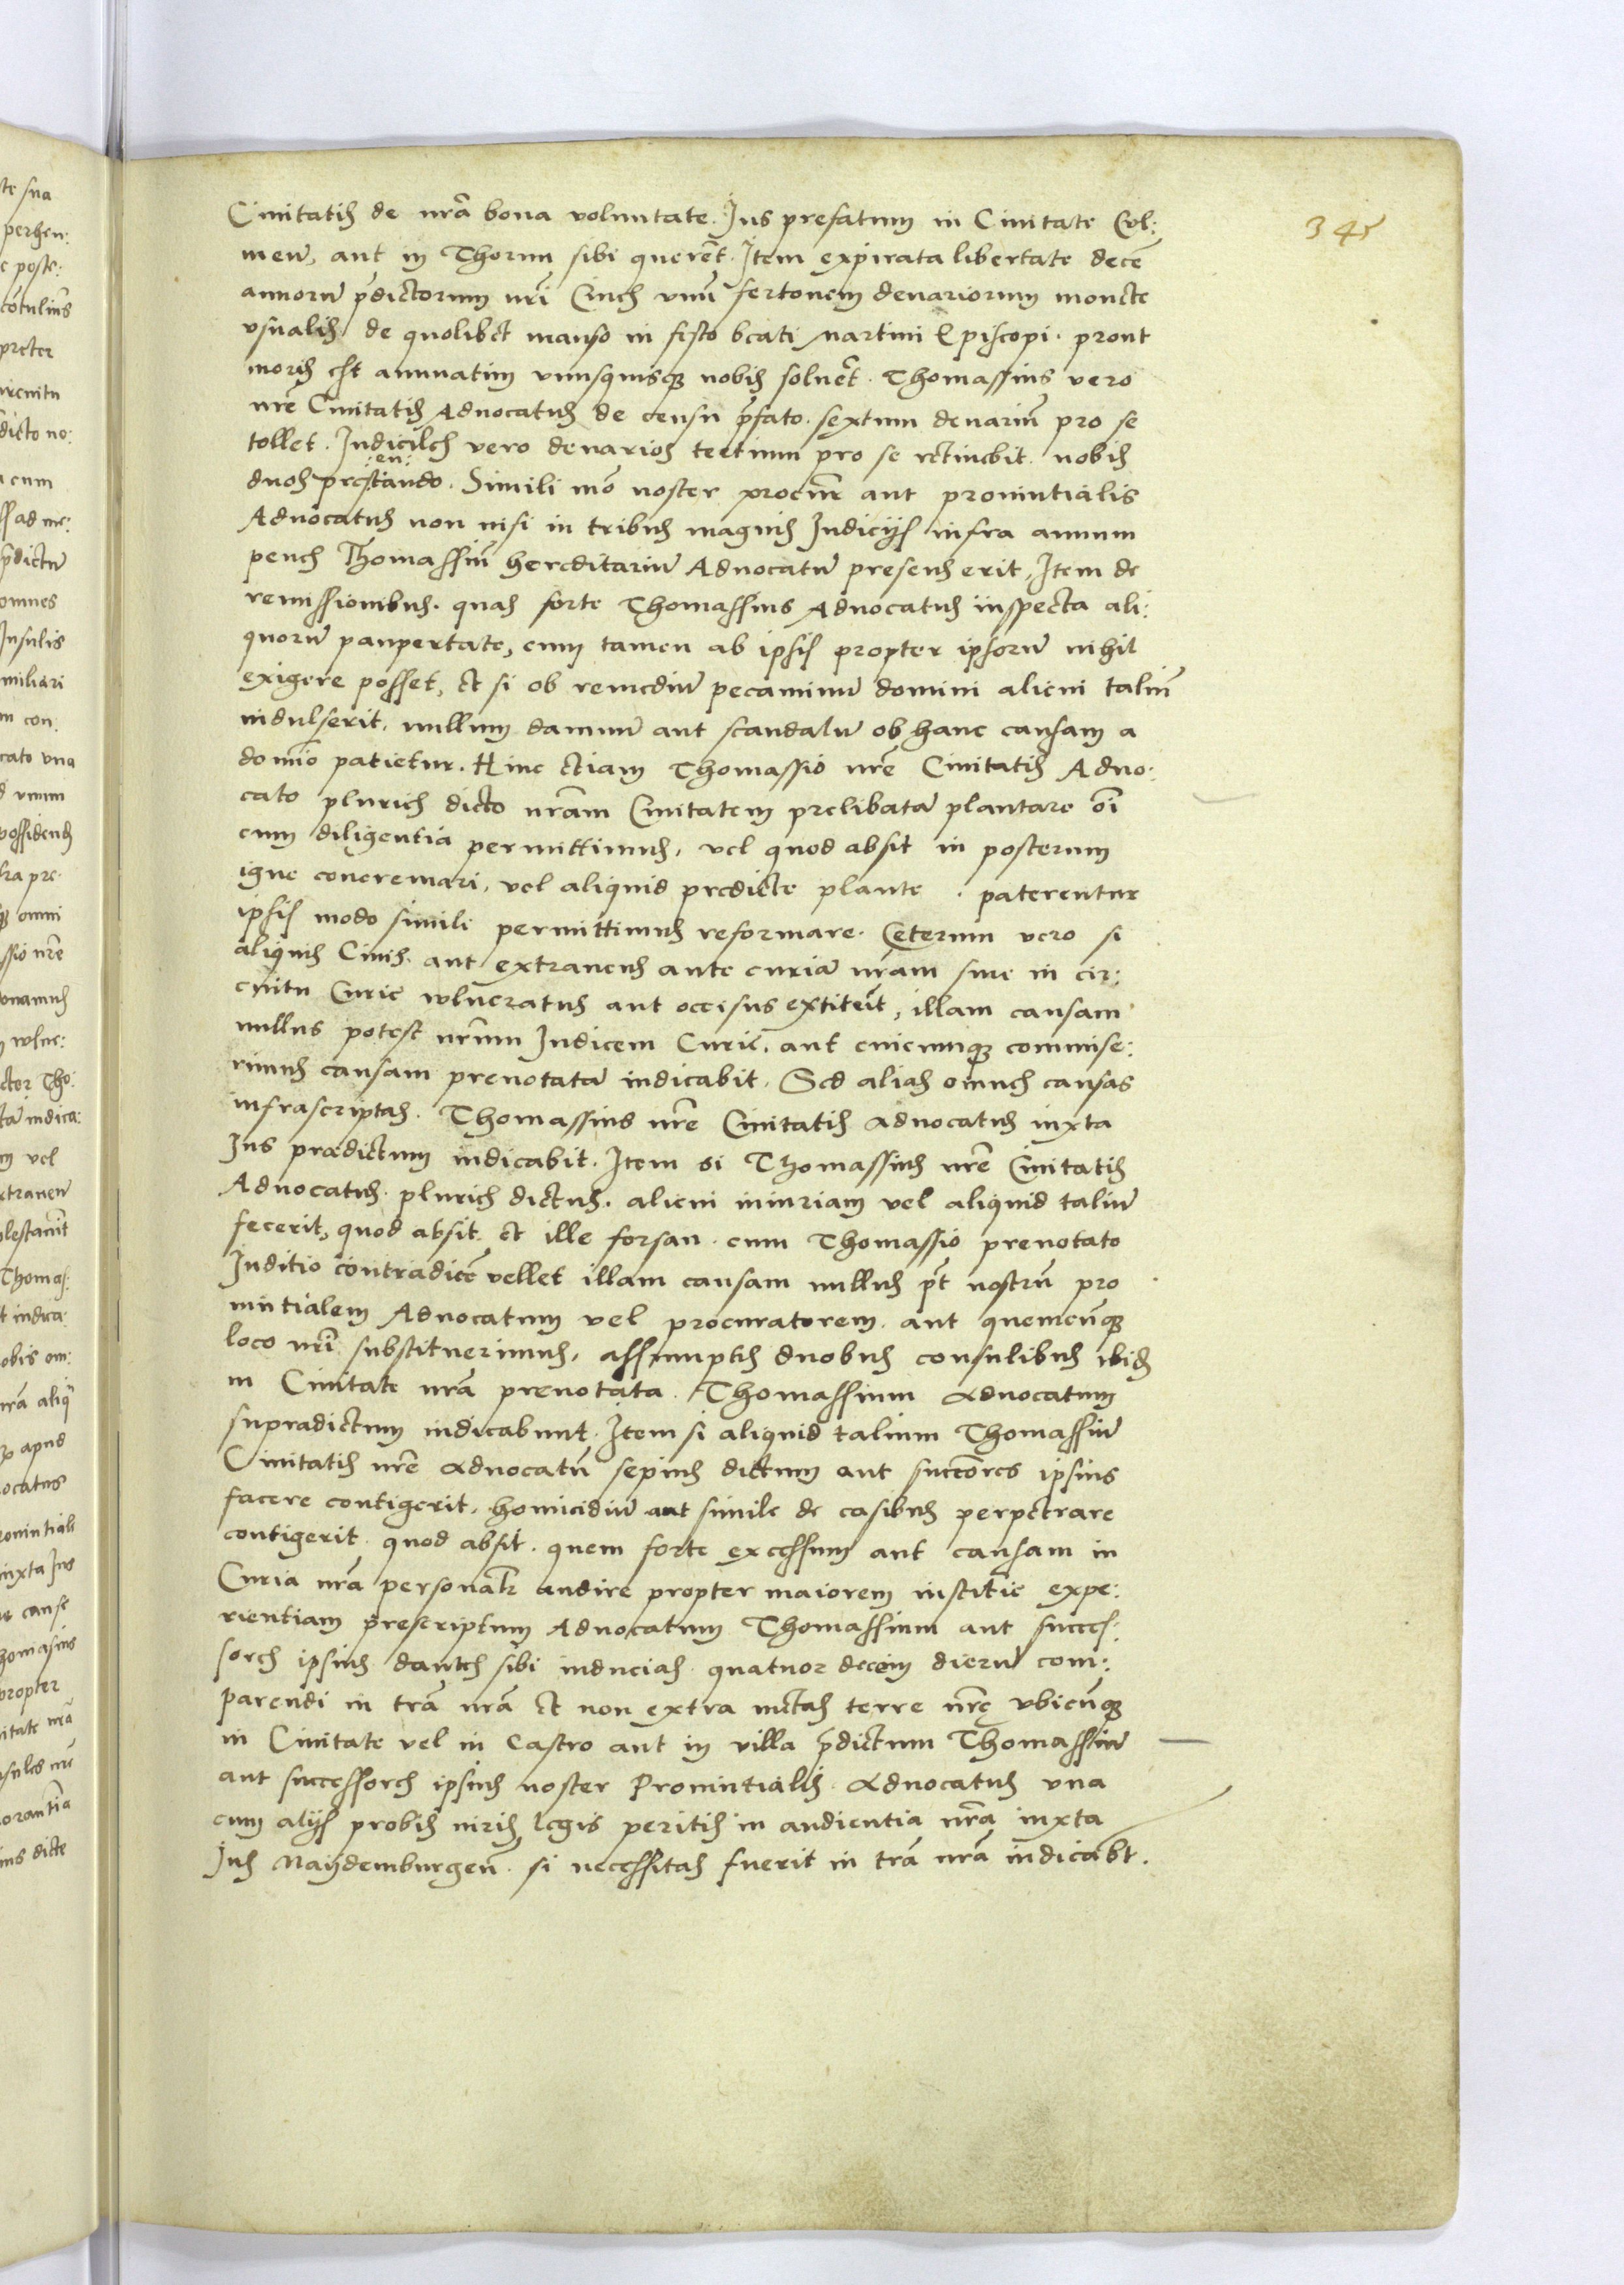 345
Ciuitatis de nrã bona voluntate. Ius prefatum in Ciuitate Col:
meñ, aut in Thorun sibi querẽt. Item expirata libertate decẽ
annorũ p̃dictorum nrĩ Ciues vnũ fertonem denariorum monete
vsualis de quolibet manso in festo beati Martini Episcopi. prout
moris est annuatim vnusquisq; nobis soluẽt. Thomassius vero
nrẽ Ciuitatis Aduocatus de censu p̃fato. sextum denariũ pro se
tollet. Iudiciles vero denarios tertium pro se retinebit. nobis
:en:
duos prestando. Simili mõ noster procur̃e aut prouintialis
Aduocatus non nisi in tribus magnis Iudicijs infra annum
penes Thomassiũ hereditariũ Aduocatũ presens erit, Item de
remissionibus. quas forte Thomassius Aduocatus inspecta ali:
quorũ paupertate, cum tamen ab ipsis propter ipsorũ nihil
exigere posset, et si ob remediũ pecaminũ domini alicui taliũ
indulserit, nullum damnũ aut scandalũ ob hanc causam a
domĩo patietur. Hinc etiam Thomassio nrẽ Ciuitatis Aduo:
cato pluries dicto nrãm Ciuitatem prelibatã plantare oĩ
cum diligentia permittimus, vel quod absit in posterum
igne concremari, vel aliquid predicte plante . paterentur
ipsis modo simili permittimus reformare. Ceterum vero si
aliquis Ciuis. aut extraneus ante curiã nrãm siue in cir:
cuitu Curie wlneratus aut occisus extiterit, illam causam
nullus potest nrũm Iudicem Curie, aut cuicunq; commise:
rimus causam prenotatã iudicabit. Sed alias omnes causas
infrascriptas. Thomassius nrẽ Ciuitatis aduocatus iuxta
Ius prædictum iudicabit. Item si Thomassius nrẽ Ciuitatis
Aduocatus. pluries dictus. alicui iniuriam vel aliquid taliũ
fecerit, quod absit. et ille forsan. cum Thomassio prenotato
Iuditio contradicẽ vellet illam causam nullus p̃t nostrũ pro
uintialem Aduocatum vel procuratorem. aut quemcũq;
loco nrĩ substituerimus, assumptis duobus consulibus ibid̃
in Ciuitate nrã prenotata. Thomassium aduocatum
supradictum iudicabunt. Item si aliquid talium Thomassiũ
Ciuitatis nrẽ aduocatũ sepius dictum aut succõres ipsius
facere contigerit, homicidiũ aut simile de casibus perpetrare
contigerit. quod absit. quem forte excessum aut causam in
Curia nrã personalr̃ audire propter maiorem iustitie expe:
rientiam prescriptum Aduocatum Thomassium aut succes:
sores ipsius dantes sibi inducias quatuor decim dierũ com:
parendi in trã nrã et non extra metas terre nrẽ vbicũq;
in Ciuitate vel in Castro aut in villa p̃dictum Thomassiũ
aut successores ipsius noster Prouintialis. aduocatus vna
cum alijs probis uiris legis peritis in audientia nrã iuxta
Ius Maydemburgeñ. si necessitas fuerit in trã nrã iudicabt.